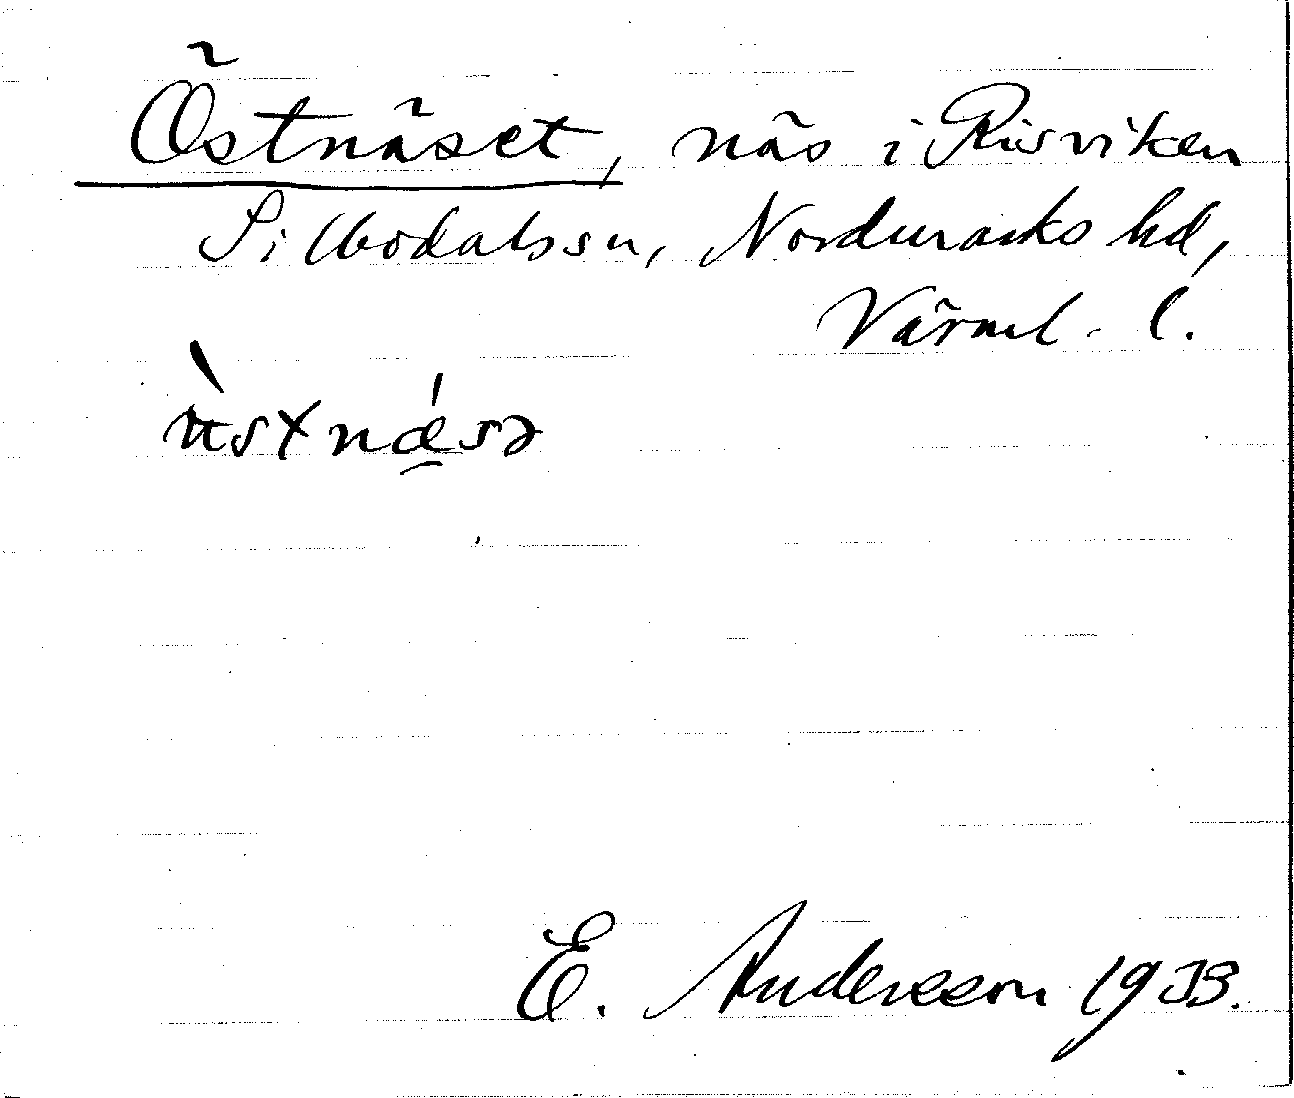 Östnäset, näs i Risviken
Silbodals sn, Nordmarks hd,
Värml. l.
E. Andersson 1933.